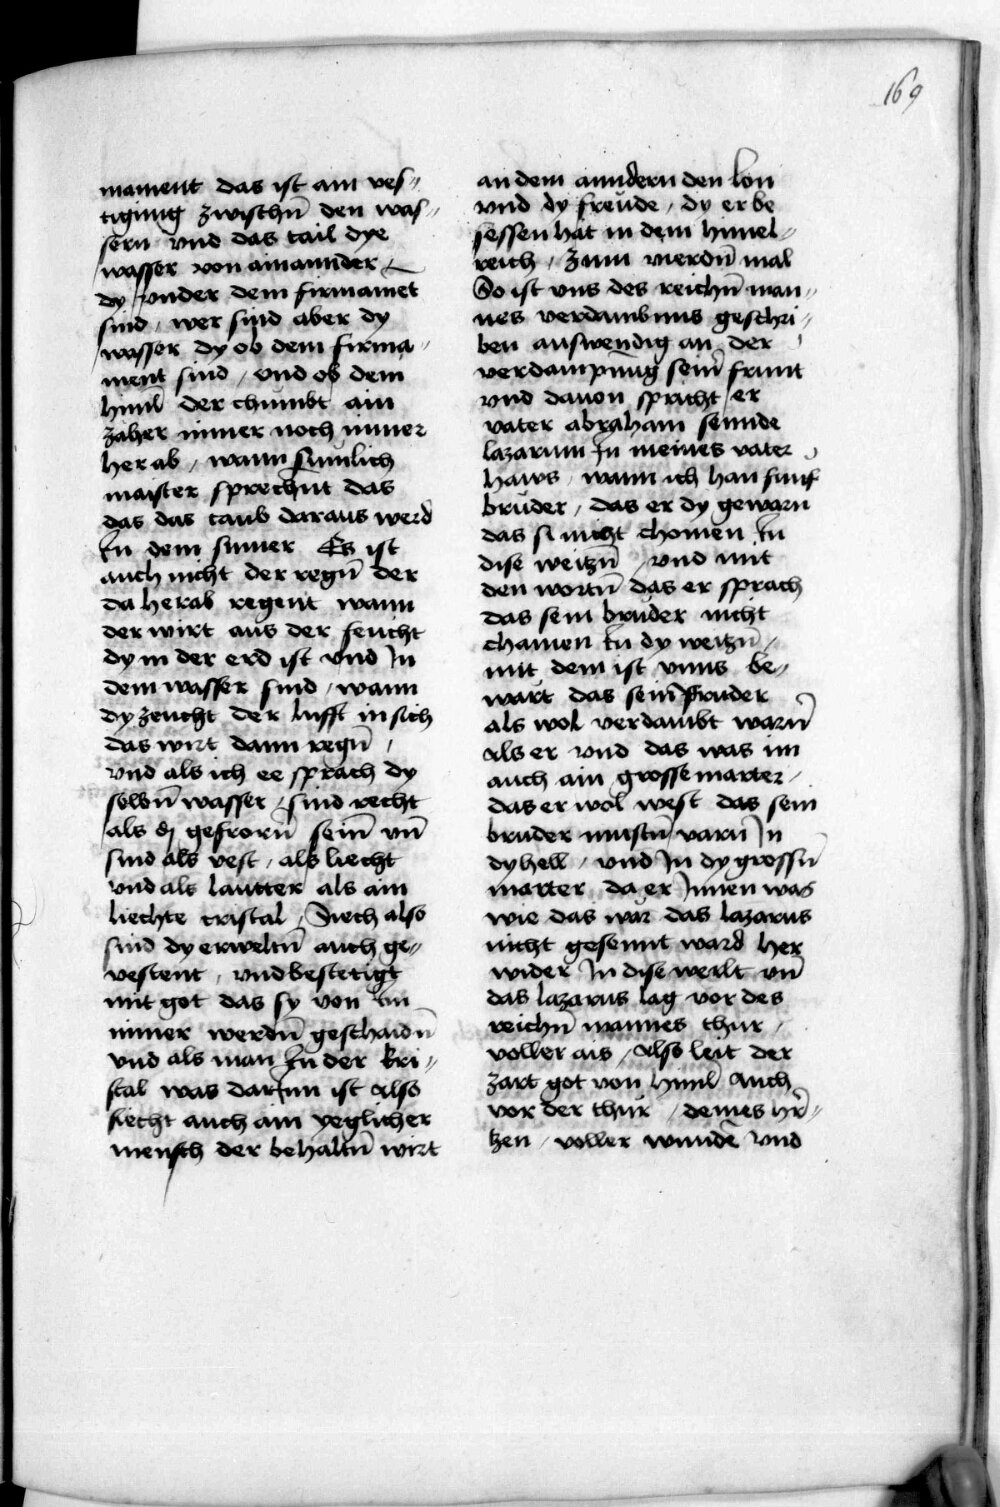 169
mament das ist ain ves„
tigung zwischn̄ den was„
sern vnd das tail dye
wasser von ainannder
dy vnder dem firmamet
sind / wer sind aber dy
wasser dy ob dem firma„
ment sind / vnd ob dem
himl̄ der chumbt ain
zaher nimer noch nimer
her ab / wann sumlich
maister sprechnt das
das das taub daraus werd
In dem sumer Es ist
auch nicht der regn̄ der
da herab regent wann
der wirt aus der feucht
dy in der erd ist vnd In
dem wasser sind / wann
dy zeucht der lufft in sich
das wirt dann regn̄ /
vnd als ich ee sprach dy
selbn̄ wasser / sind recht
als dy gefrorn̄ sein̄ vn̄
sind als vest / als liecht
vnd als lautter als ain
liechte cristal / Siech also
sind dy erweltn̄ auch ge„
vestent / vnd bestetigt
mit got das sy von im
nimer werdn̄ geschaidn̄
vnd als man In der kri„
stal was darInn ist also
siecht auch ain yeglicher
mensch der behaltn̄ wirt
an dem anndern den lon
vnd dy freüde / dy er be
sessen hat in dem himel„
reich / Zum vierdn̄ mal
So ist vns des reichn̄ man„
nes verdambnus geschri„
ben auswendig an der
verdampnug sein̄ frunt
vnd dauon spricht er
vater abraham sennde
lazarum In meines vater
haws / wann ich han funf
brüder / das er dy gewarn
das si nicht chomen In
dise weitzn̄ / vnd mit
den wortn̄ das er sprach
das sein brüder nicht
chamen In dy weitzn̄ /
mit dem ist vnns be„
wart das sein̄ pruder
als wol verdambt warn̄
als er vnd das was im
auch ain grosse marter /
das er wol west das sein
bruder mustn̄ varn̄ In
dy hell / vnd In dy grossn̄
marter da er Innen was
wie das war das lazarus
nicht gesennt ward her
wider In dise werlt vn̄
das lazarus lag vor des
reichn̄ mannes thur /
voller ais / Also leit der
zart got von himl̄ auch
vor der thür / deines hr̄„
tzen / voller wunndē vnd